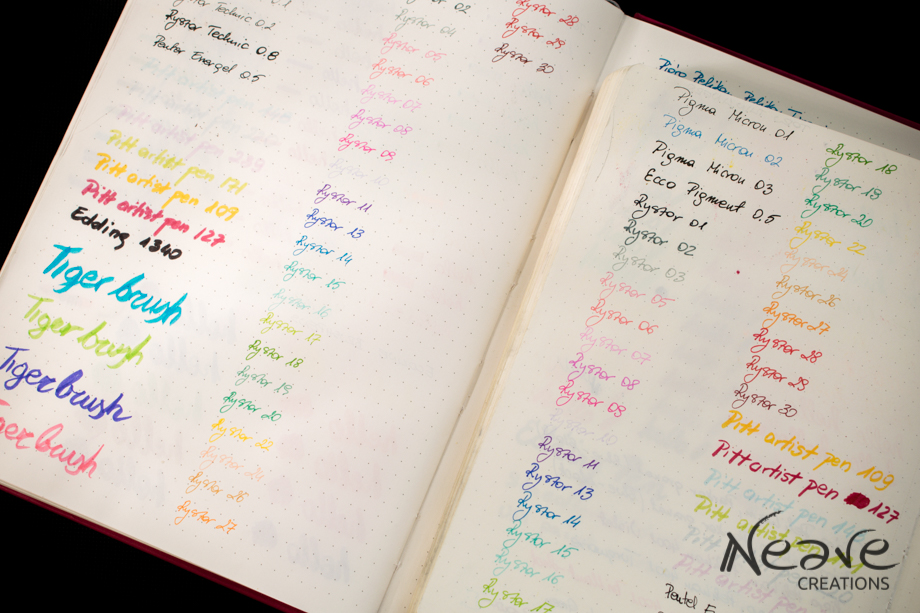 Rystor Technic 0.2
Rystor Technic 0.8
Pentel Energel 0.5
Pitt artist pen 171
Pitt artist pen 109
Pitt artist pen 127
Edding 1340
Tiger brush
Tiger brush
Tiger brush
brush
02
Rystor 04
Rystor 05
Rystor 06
Rystor 07
Rystor 08
Rystor 09
Rystor 11
Rystor 13
Rystor 14
Rystor 15
Rystor 16
Rystor 17
Rystor 18
Rystor 19
Rystor 20
Rystor 22
Rystor 26
Rystor 27
Rystor 28
Rystor 29
Rystor 30
Pióro Pelikan
Pigma Micron 01
Pigma Micron 02
Pigma Micron 03
Ecco Pigment 0.5
Rystor 01
Rystor 02
Rystor 03
Rystor 05
Rystor 06
Rystor 07
Rystor 08
Rystor 09
Rystor 10
Rystor 11
Rystor 13
Rystor 14
Rystor 15
Rystor 16
Rystor 17
Rystor 18
Rystor 19
Rystor 20
Rystor 22
Rystor 26
Rystor 27
Rystor 28
Rystor 29
Rystor 30
Pitt artist pen 109
Pitt artist pen 127
Pitt artist pen
Pitt artist pen
Pitt artist pen
Pentel E
Neave
CREATIONS